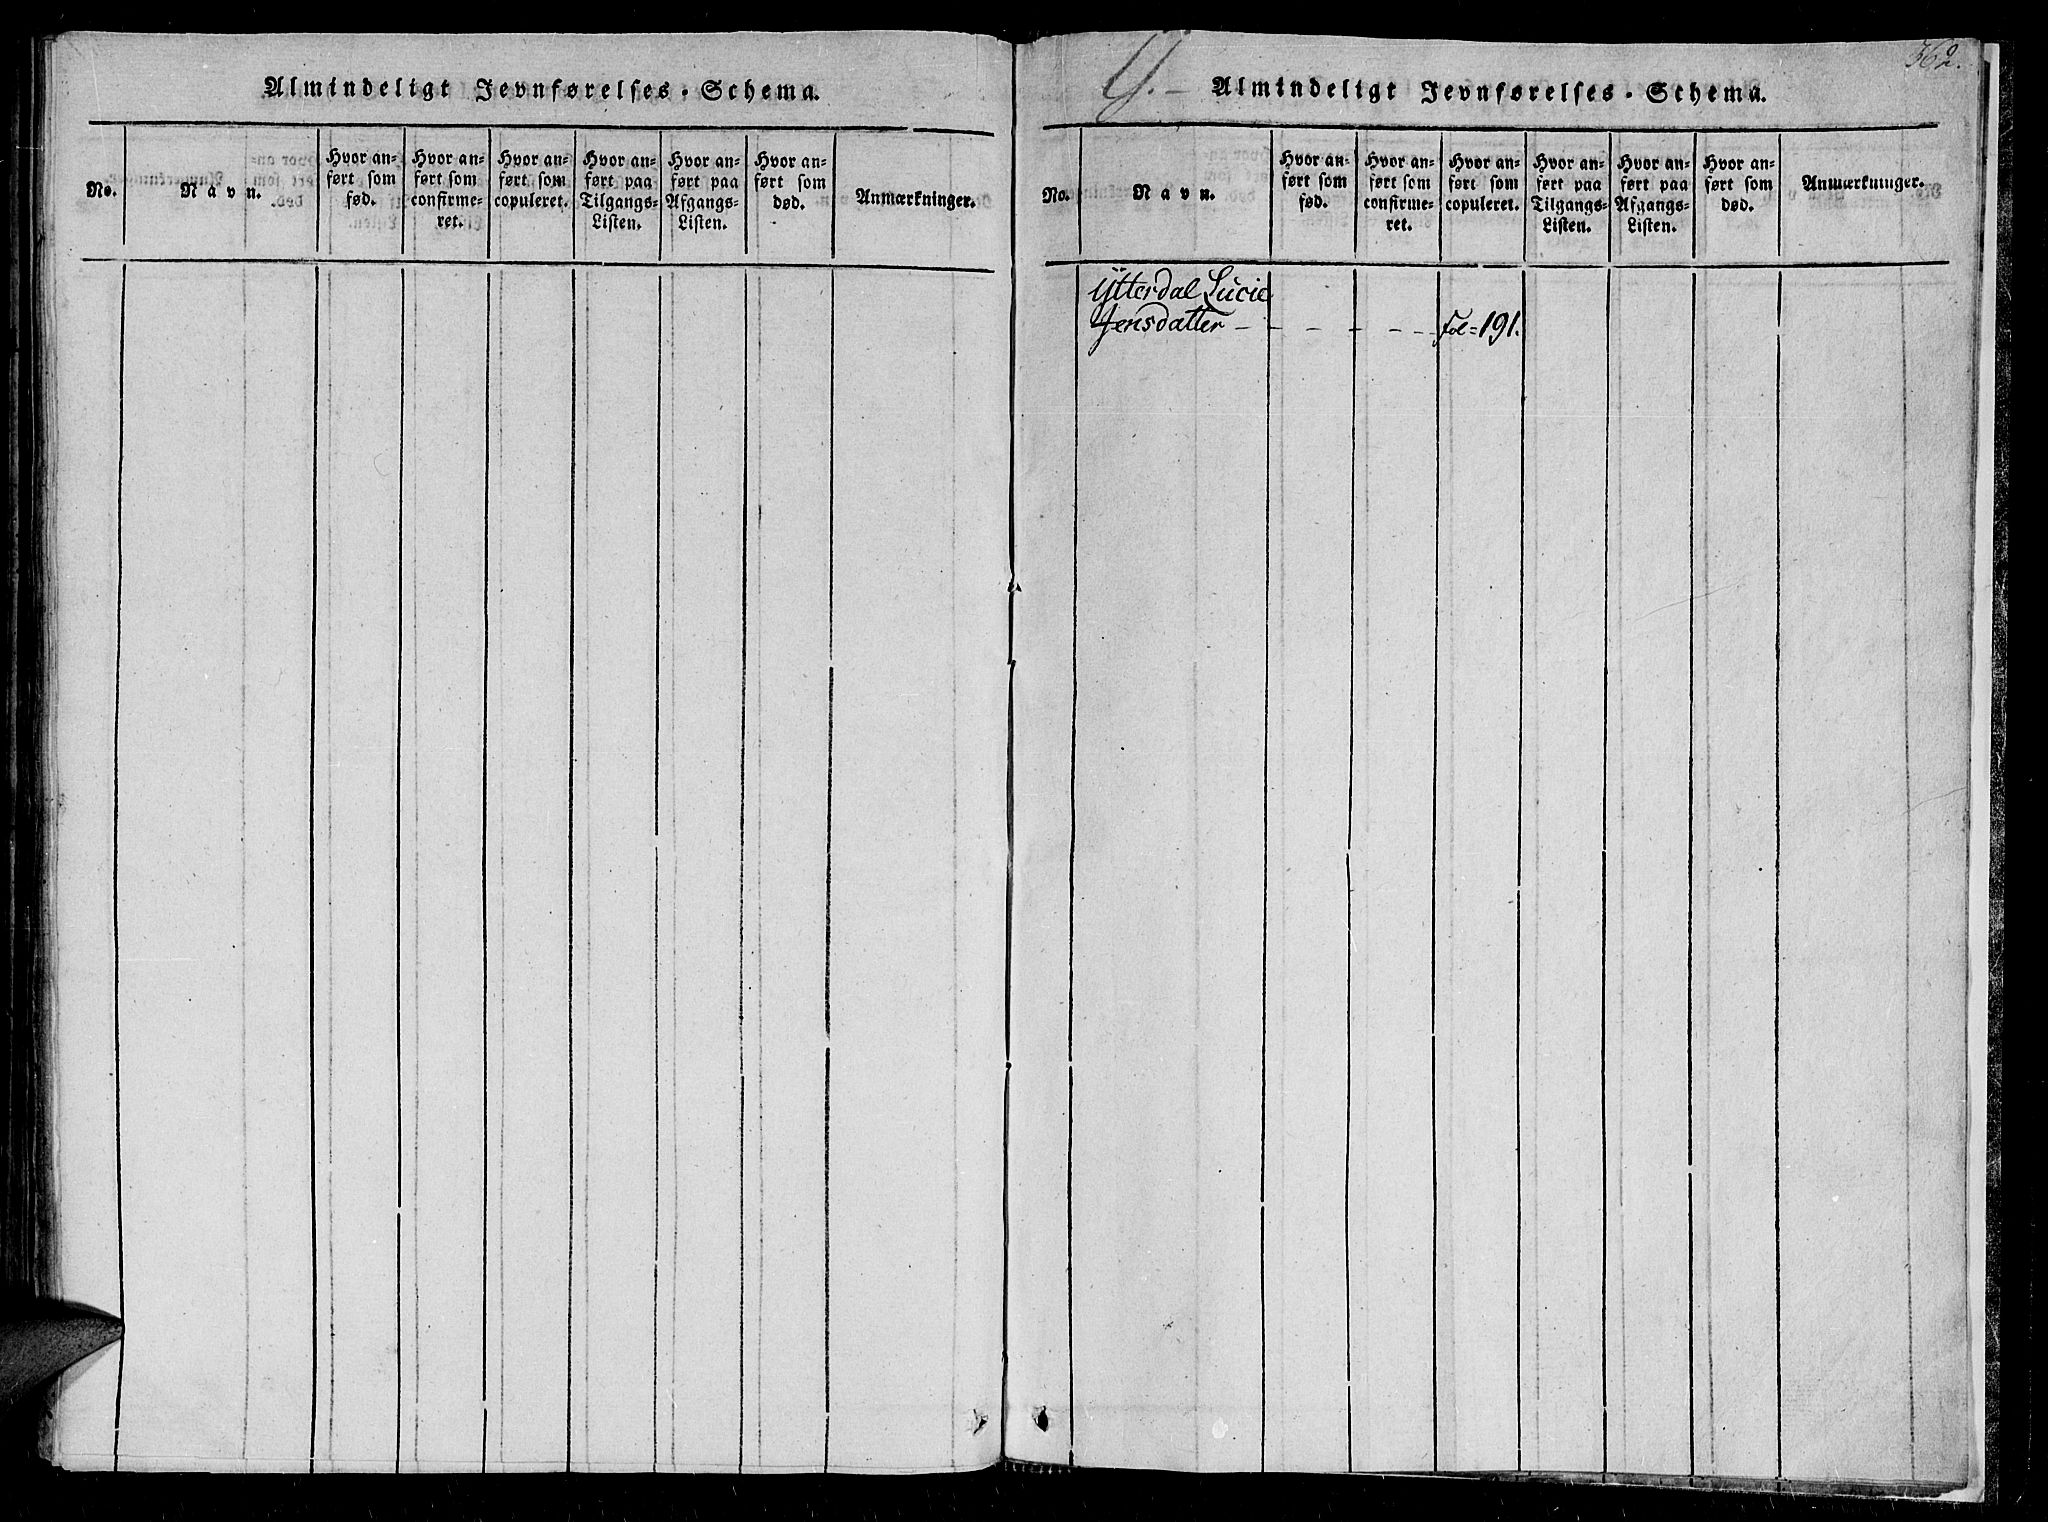 Almindeligt Jevnførelses-Schema.
No.
Navn.
Hvor an-
ført som
fød.
Hvor an-
ført som
confirme-
ret.
Hvor an-
ført som
copuleret.
Hvor an-
ført paa
Tilgangs-
Listen.
Hvor an-
ført paa
Afgangs-
Listen.
Hvor an-
ført som
død.
Anmærkninger.
362.
Y. - Almindeligt Jevnførelses-Schema.
No.
Navn.
Hvor an-
ført som
fød.
Hvor an-
ført som
confirme-
ret.
Hvor an-
ført som
copuleret.
Hvor an-
ført paa
Tilgangs-
Listen.
Hvor an-
ført paa
Afgangs-
Listen.
Hvor an-
ført som
død.
Anmærkninger.
Ytterdal Lucie
Jensdatter - - - - - - Fol=191.